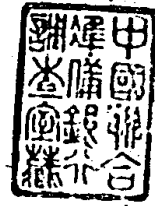 中國聯合
準備銀行
調查室藏